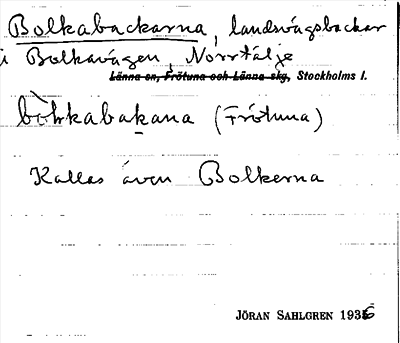 Bolkabackarna, landsvägsbackar
i Bolkavägen, Norrtälje
Länna sn, Frötuna och Länna skg, Stockholms l.
bòłkabakana (Frötuna)
Kallas även Bolkerna
JÖRAN SAHLGREN 1936